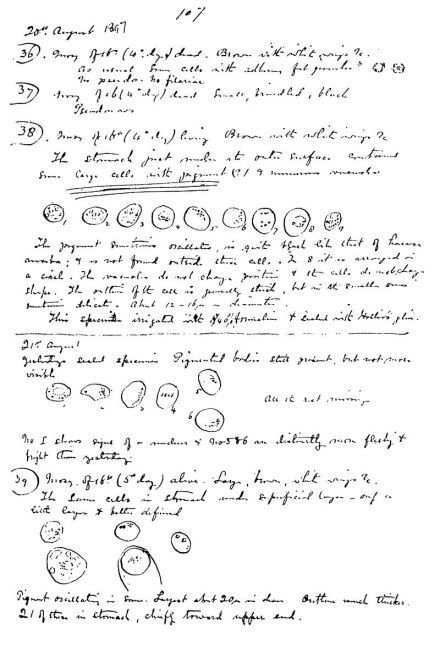 107
20th August 1897
36. Mosq. of 16th (4th day) dead. Brown with white wings &c.
As usual some cells with
No pseudo. No filariae
37 Mosq of 16 (4th day) dead Small, brindled, black
Pseudonav
38. Mosq. of 16th (4th day) living Brown with white wings &c
The stomach just under its outer surface contained
some large cells with pigment (?) & numerous vacuoles
1 2 3 4 5 6 7 8 9
The pigment sometimes oscillates, is quite black like that of
; & is not found outside these cells. In 8 it is arranged in
a circle. The vacuoles do not change position & the cells do not change
shape. The outline of the cell is generally thick, but in the smaller ones
sometimes delicate. About 12-16µ in diameter.
This specimen irrigated with 40% formalin & sealed with glue.
21st August
Yesterdays sealed specimen Pigmented bodies still present, but not more
visible
3 4 5 6
All it not
No 1 shows signs of a nucleus & no 5 & 6 are distinctly more fleshy &
bright than yesterday.
39 Mosq. of 16th (5th day) alive. Large, brown, white wings &c.
The same cells in stomach under superficial layer - only a
little larger & better defined
Pigment oscillating in some. Largest about 20µ in diam. Outline much thicker.
21 of them in stomach, chiefly toward upper end.